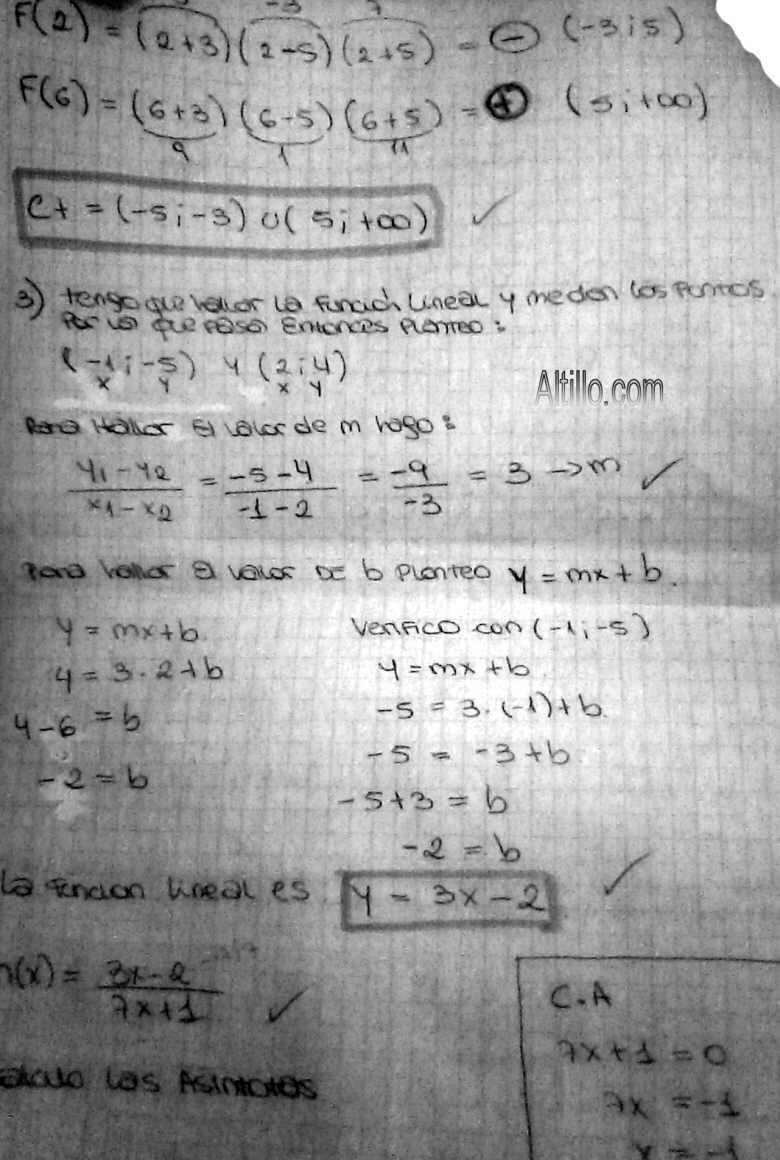 -3 7
F(2) = (2+3) (2-5) (2+5) = ⊖ (-3;5)
F(6) = (6+3) (6-5) (6+5) = ⊕ (5;+∞)
9 1 11
C+ = (-5;-3) ∪ (5;+∞) ✓
3) tengo que hallar la función lineal y me dan los puntos
por los que pasa entonces planteo:
(-1;-5) y (2;4)
x y x y
Altillo.com
Para hallar el valor de m hago:
y1-y2 / x1-x2 = -5-4 / -1-2 = -9 / -3 = 3 → m ✓
Para hallar el valor de b planteo y = mx+b.
y = mx+b. Verifico con (-1;-5)
4 = 3.2+b y = mx+b.
4-6 = b -5 = 3.(-1)+b.
-2 = b -5 = -3+b
-5+3 = b
-2 = b
La funcion lineal es y = 3x-2 ✓
(x) = 3x-2 / 7x+1 ✓
C.A
7x+1 = 0
las Asintotas
7x = -1
x = -1